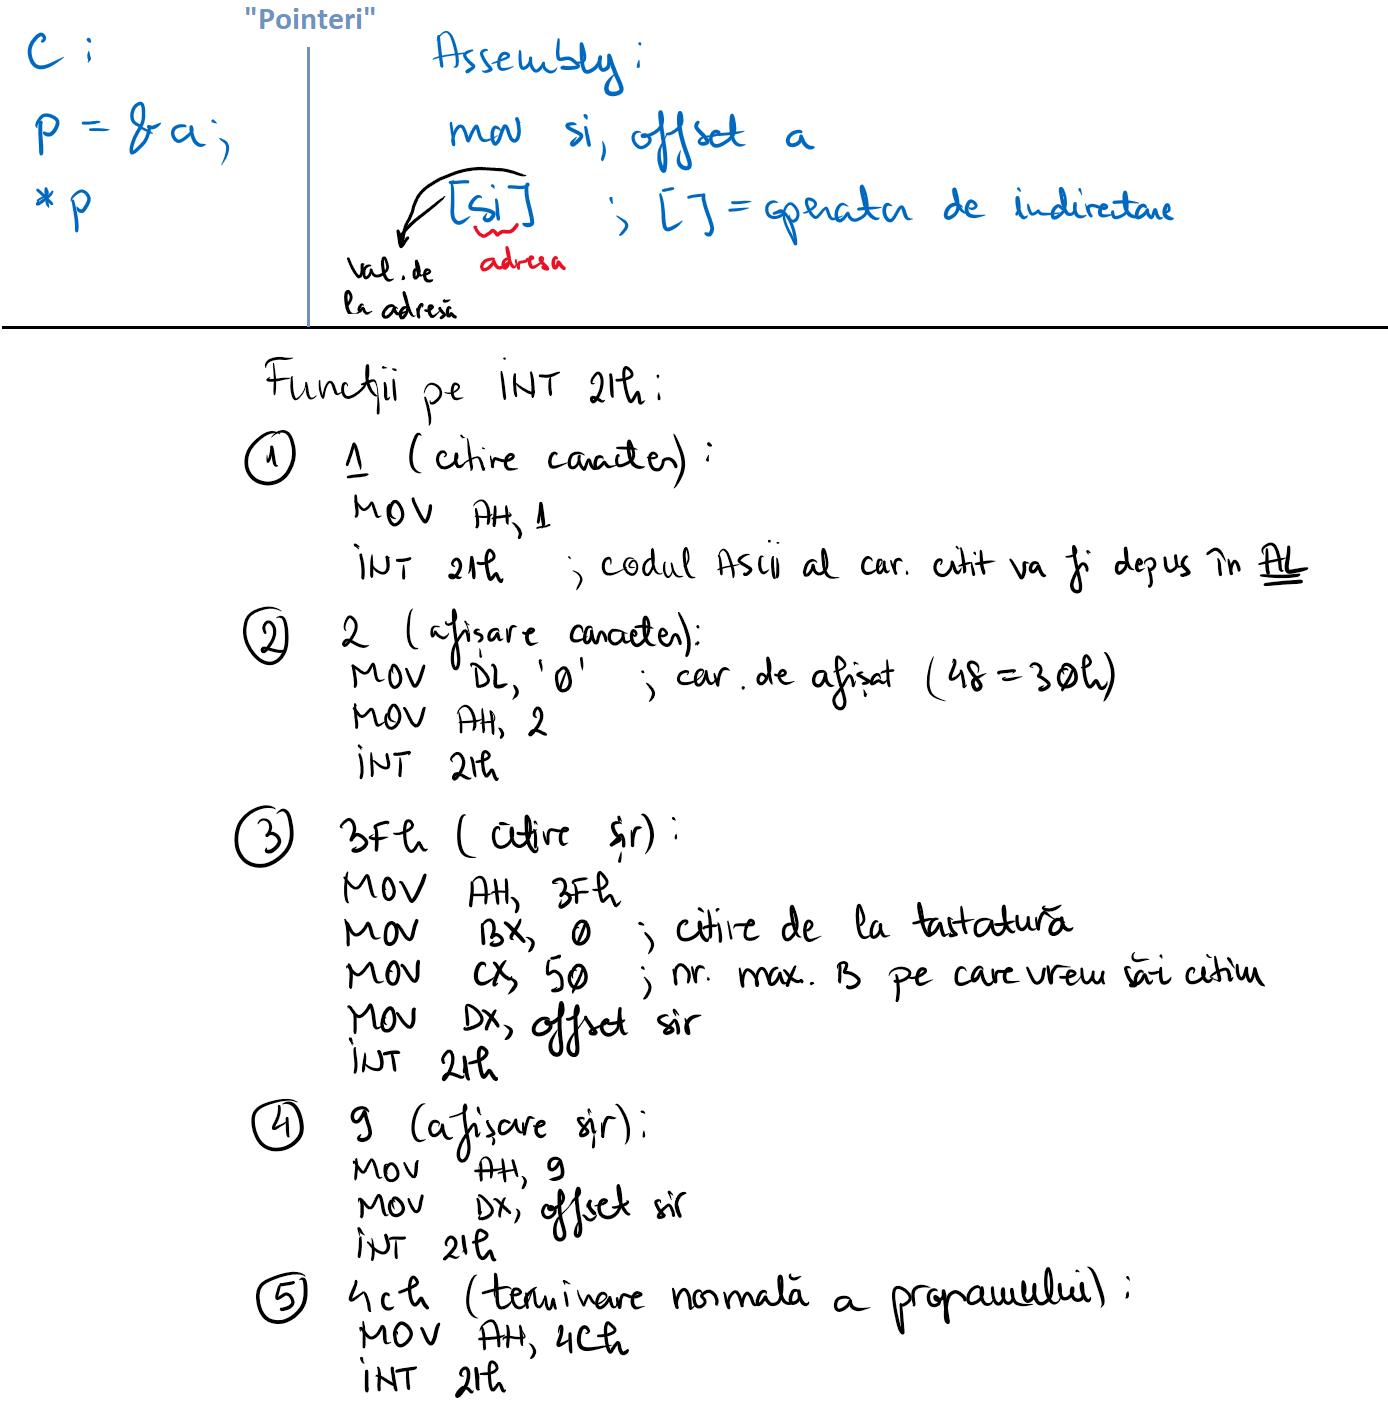 "Pointeri"
C :
p = &a;
*p
Assembly :
mov si, offset a
[si] ; [ ] = operator de indirectare
adresa
val. de
la adresă
Funcții pe INT 21h :
① 1 (citire caracter) :
MOV AH, 1
INT 21h ; codul ASCII al car. citit va fi depus în AL
② 2 (afișare caracter):
MOV DL, '0' ; car. de afișat (48 = 30h)
MOV AH, 2
INT 21h
③ 3Fh (citire șir) :
MOV AH, 3Fh
MOV BX, 0 ; citire de la tastatură
MOV CX, 50 ; nr. max. B pe care vrem să-i citim
MOV DX, offset sir
INT 21h
④ 9 (afișare șir) :
MOV AH, 9
MOV DX, offset sir
INT 21h
⑤ 4ch (terminare normală a programului) :
MOV AH, 4Ch
INT 21h